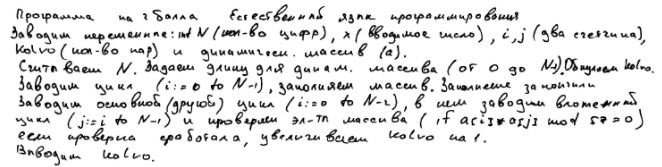 Программа на 2 балла Естественный язык программирования
Заводим переменные: int N (кол-во цифр), x (вводимое число), i, j (два счетчика),
Kolvo (кол-во пар) и динамическ. массив (a).
Считываем N. Задаем длину для динам. массива (от 0 до N-1). Обнуляем kolvo.
Заводим цикл (i:=0 to N-1), заполняем массив. Заполнение закончили
Заводим основной (другой) цикл (i:=0 to N-2), в нем заводим вложенный
цикл (j:=i to N-1) и проверяем эл-ты массива (if a[i]*a[j] mod 57=0)
если проверка сработала, увеличиваем kolvo на 1.
Выводим kolvo.